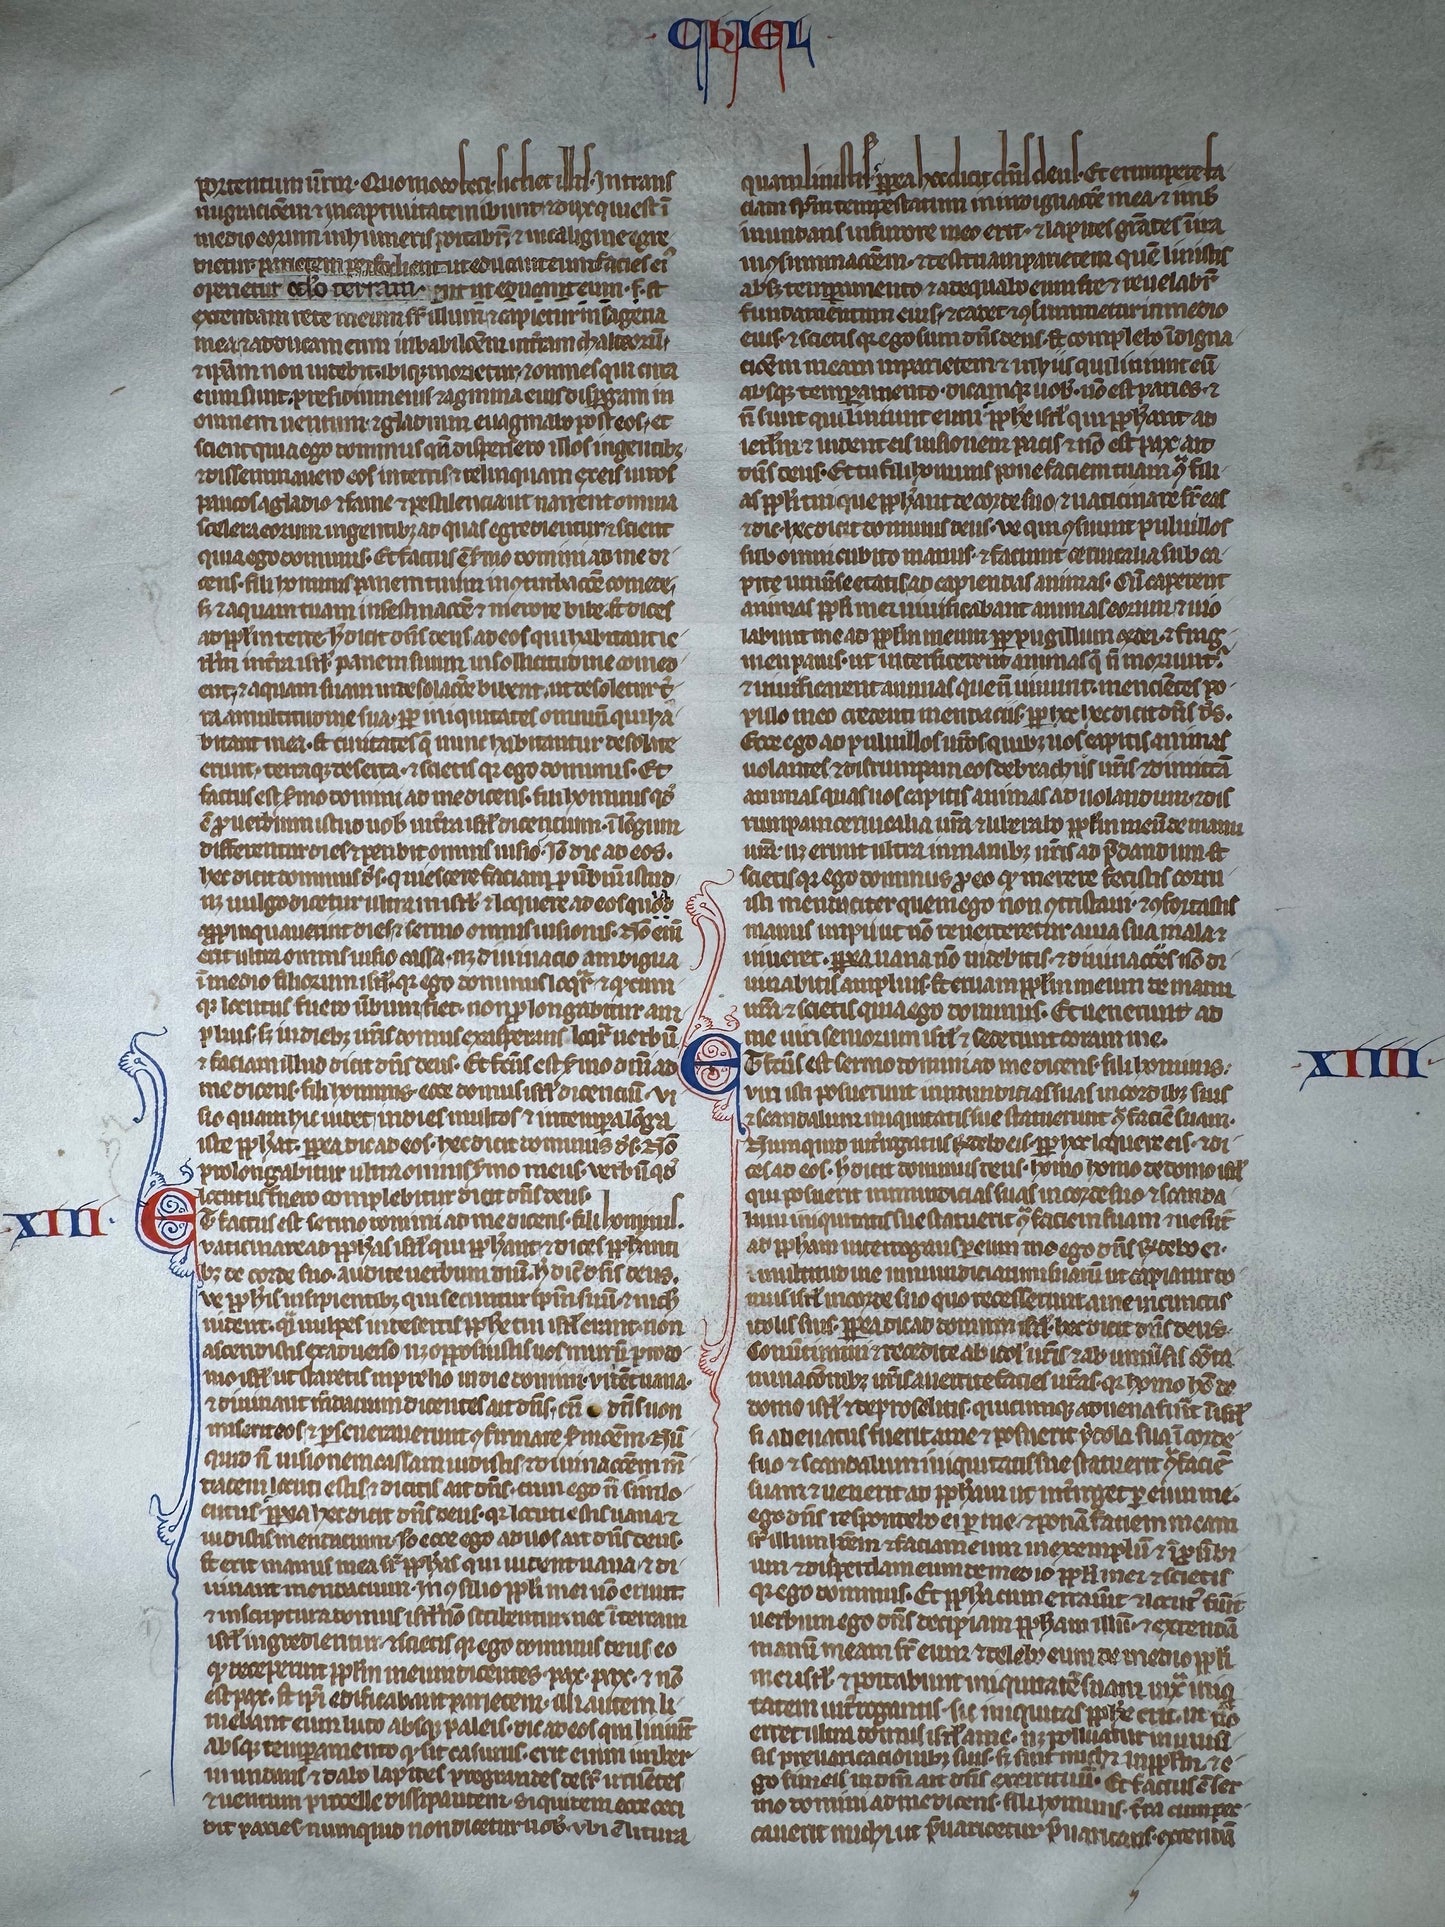 CHIEL
portentum ur̄m· Quomodo feci· sic fiet illis· In trans
migracōem ⁊ in captiuitatem ibunt· ⁊ dux qui est ī
medio eorum in humeris portabit̄· ⁊ in caligine egre
dietur· parietem perfodient ut educant eum· facies ei᷒
operietur
extendam rete meum sr̄ illum· ⁊ capietur in sagena
mea· ⁊ adducam eum in babilōem in terram chaldeorū·
⁊ ip̄am non uidebit· ibiq; morietur· ⁊ omnes qui circa
eum sunt· presidium eius· ⁊ agmina eius dispergam in
omnem uentum· ⁊ gladium euaginabo post eos· et
scient quia ego dominus qn̄ dispersero illos in gentib;
⁊ disseminauero eos in terris· ⁊ relinquam ex eis uiros
paucos a gladio ⁊ fame ⁊ pestilencia ut narrent omnia
scelera eorum in gentib; ad quas egredientur· ⁊ scient
quia ego dominus· Et factus ē s̄mo domini ad me di
cens· fili hominis panem tuum in ꝯturbacōe comede·
s; ⁊ aquam tuam in festinacōe ⁊ merore bibe· Et dices
ad pp̄lm terre· h̄ dicit dn̄s deus ad eos qui habitant ie
rl̄m in t̄ra isrl̄· panem suum in sollicitudine comed
ent· ⁊ aquam suam in desolacōe bibent· ut desoletur t̄
ra a multitudine sua· pp̄ iniquitates omniū qui ha
bitant in ea· Et ciuitates q̄ nunc habitantur desolate
erunt· terraq; deserta· ⁊ scietis qr ego dominus· Et
factus est s̄mo domini ad me dicens· fili hominis qd̄
ē ꝓuerbium istud uob̄ in t̄ra isrl̄ dicentium· ī lōgum
differentur dies ⁊ peribit omnis uisio· Jō dic ad eos·
hec dicit dominus ds̄· quiescere faciam ꝓūbiū istud·
n; uulgo dicetur ultra in isrl̄· ⁊ loquere ad eos quod
appinquauerint dies ⁊ sermo omnis uisionis· Nō eni᷒
erit ultra omnis uisio cassa· n; diuinacio ambigua
ī medio filiorum isrl̄· qr ego dominus loq̄r· ⁊ q̄cum
q; locutus fuero ūbum fiet· non ꝓlongabitur am
plius· s; in dieb; ur̄is domus exasperans loq̄r uerbū
⁊ faciam illud dicit dn̄s deus· Et fc̄us est s̄mo dn̄i ad
me dicens· fili hominis· ecce domus isrl̄ dicenciū· vi
sio quam hic uidet in dies multos ⁊ in tempora lōga
iste pp̄hat· pp̄ea dic ad eos· hec dicit dominus ds̄· Nō
prolongabitur ultra omnis s̄mo meus· verbū qd̄
locutus fuero complebitur dicit dn̄s deus·
XIII
ET factus est sermo domini ad me dicens· fili hominis·
vaticinare ad pp̄has isrl̄ qui pp̄hant· ⁊ dices pp̄hanti
b; de corde suo· audite uerbum dn̄i· h̄ dic̄ dn̄s deus·
ve pp̄his insipientib; qui secuntur sp̄m suū ⁊ nich̄
uident· q̄i uulpes in desertis pp̄he tui isrl̄ erant· non
ascendistis ex aduerso n; opposuistis uos murū pro do
mo isrl̄ ut staretis in prelio in die domini· vident uana·
⁊ diuinant m̄dacium dicentes ait dn̄s· cū dn̄s non
miserit eos· ⁊ perseuerauerunt ꝯfirmare s̄mōem· Nū
quid nō uisionem cassam uidistis ⁊ diuinacōem m̄
dacem locuti estis· ⁊ dicitis ait dn̄s· cum ego nō sim lo
cutus· pp̄ea hec dicit dn̄s deus· qr locuti estis uana ⁊
uidistis mendacium· Jō ecce ego ad uos ait dn̄s deus·
Et erit manus mea sr̄ pp̄has qui uident uana ⁊ di
uinant mendacium· in ꝯsilio pp̄li mei nō erunt·
⁊ in scriptura domus isrl̄ nō scribentur· nec ī terram
isrl̄ ingredientur· ⁊ scietis qr ego dominus deus eo
q; deceperunt pp̄lm meum dicentes· pax· pax· ⁊ nō
est pax· Et ip̄i edificabant parietem· illi autem li
niebant eum luto absq; paleis· dic ad eos qui liniunt
absq; temperamento q; sit casurus· erit enim imber
inundans ⁊ dabo lapides pregrandes desr̄ irruētes
⁊ uentum procelle dissipantem· siquidem ecce ceci
dit paries· numquid non dicetur uob̄· vbi ē litura
quam linistis· pp̄ea hec dicit dn̄s deus· Et erumpere fa
ciam sp̄m tempestatum in indignacōe mea· ⁊ imb̄
inundans in furore meo erit· ⁊ lapides grādes in ira
in ꝯsummacōem· ⁊ destruam parietem quē linistis
absq; temperamento· ⁊ adequabo eum t̄re ⁊ reuelabit̄
fundamentum eius· ⁊ cadet ⁊ ꝯsumetur in medio
eius· ⁊ scietis qr ego sum dn̄s deus· Et complebo īdigna
cōem meam in parietem ⁊ in hiis qui liniunt eū
absq; temperamento· dicamq; uob̄· nō est paries· ⁊
n̄ sunt qui liniunt eum· pp̄he isrl̄ qui pp̄hant ad
ierl̄m ⁊ uident eis uisionem pacis ⁊ nō est pax· ait
dn̄s deus· Et tu fili hominis pone faciem tuam ꝯ̄ fili
as pp̄li tui que pp̄hant de corde suo· ⁊ uaticinare sr̄ eas
⁊ dic· hec dicit dominus deus· ve qui ꝯsuunt puluillos
sub omni cubito manus· ⁊ faciunt ceruicalia sub ca
pite uniu᷒se etatis ad capiendas animas· Cū caperent
animas pp̄li mei uiuificabant animas eorum ⁊ uio
labunt me ad pp̄lm meum pp̄ pugillum ordei· ⁊ frag
men panis· ut interficerent animas q̄ n̄ moriunt᷒·
⁊ uiuificarent animas que n̄ uiuunt· mencientes po
pulo meo credenti mendaciis· pp̄ hec hec dicit dn̄s ds̄·
Ecce ego ad puluillos ur̄os quib; uos capitis animas
uolantes ⁊ disrumpam eos de brachiis ur̄is· ⁊ dimittā
animas quas uos capitis animas ad uolandum· ⁊ dis
rumpam ceruicalia ur̄a ⁊ liberabo pp̄lm meū de manu
ur̄a· n; erunt ultra in manib; ur̄is ad p̄dandum· Et
scietis qr ego dominus· ꝓ eo q; merere fecistis cor iu
sti mendaciter quem ego non ꝯtristaui· ⁊ ꝯfortastis
manus impii ut nō reuerteretur a uia sua mala ⁊
uiueret· pp̄ea uana nō uidebitis· ⁊ diuinacōes nō di
uinabitis amplius· Et eruam pp̄lm meum de manu
ur̄a ⁊ scietis quia ego dominus· Et uenerunt ad
me uiri seniorum isrl̄ ⁊ sederunt coram me·
XIIII
ET fc̄us est sermo domini ad me dicens· fili hominis·
viri isti posuerunt inmundicias suas in cordib; suis
⁊ scandalum iniquitatis sue statuerunt ꝯ̄ faciē suam·
Numquid int̄rogatus r̄ndebo eis· pp̄ hec loquere eis· ⁊ di
ces ad eos· h̄ dicit dominus deus· homo homo de domo isrl̄
qui posuerit inmundicias suas in corde suo ⁊ scanda
lum iniquitatis sue statuerit ꝯ̄ faciem suam· ⁊ uen̄it
ad pp̄ham interrogans per eum me· ego dn̄s r̄ndebo ei·
ī multitudine inmundiciarum suarū ut capiatur do
mus isrl̄ in corde suo quo recesserunt a me in cunctis
idolis suis· pp̄ea dic ad domum isrl̄· hec dicit dn̄s deus·
Conu᷒timini ⁊ recedite ab idolis ur̄is· ⁊ ab uniu᷒sis cōta
minacōnib; ur̄is auertite facies ur̄as· qr homo hō de
domo isrl̄ ⁊ de proselitis· quicumq; aduena fuerit ī isrl̄
si alienatus fuerit a me ⁊ posuerit ydola sua ī corde
suo ⁊ scandalum iniquitatis sue statuerit ꝯ̄ faciē
suam· ⁊ uenerit ad pp̄ham ut int̄rroget per eum me·
ego dn̄s respondebo ei per me· ⁊ ponam faciem meam
sr̄ illum hoīem ⁊ faciam eum in exemplū ⁊ ī ꝓūbi
um· ⁊ disperdam eum de medio pp̄li mei· ⁊ scietis
qr ego dominus· Et pp̄ha cum errau᷒it ⁊ locut᷒ fu᷒it
uerbum ego dn̄s decipiam pp̄ham illū· ⁊ extendā
manū meam sr̄ eum ⁊ delebo eum de medio pp̄li
mei isrl̄· ⁊ portabunt iniquitatē suam· iuxᷓ iniq̄
tatem int̄rogantis· sic iniquitas pp̄he erit· ut nō
erret ultra domus isrl̄ a me· n; polluatur in uniu᷒
sis preuaricacionib; suis· s; sint mich̄ in pp̄lm· ⁊ e
go sim eis in dm̄ ait dn̄s exercituū· Et factus ē ser
mo domini ad me dicens· fili hominis· t̄ra cum pec
cauerit michi ut p̄uaricetur p̄uaricans· extendā